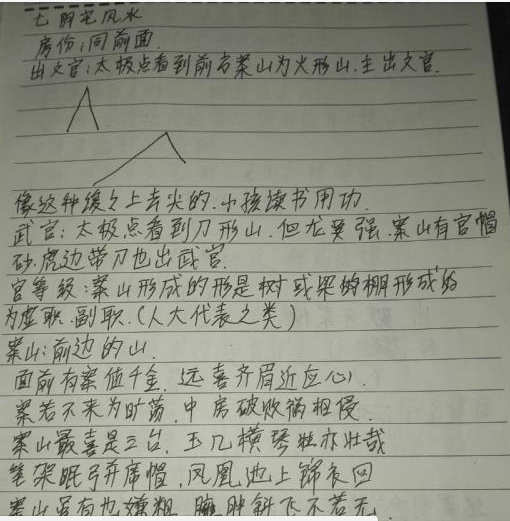 七阴宅风水
房份:同前面.
出文官:太极点看到前方案山为火形山.主出文官.
像这种缓之上去尖的.小孩读书用功.
武官:太极点看到刀形山.但龙要强.案山有官帽
砂.虎边带刀也出武官.
官等级:案山形成的形是树或果的棚形成的
为虚职.副职.(人大代表之类)
案山:前边的山.
面前有案值千金.远喜齐眉近应心.
案若不来为旷荡.中房破败祸相侵.
案山最喜是三台.玉几横琴壮亦壮哉
笔架眠弓并席帽,凤凰池上锦衣回
案山虽有也嫌粗 臃肿斜飞不若无